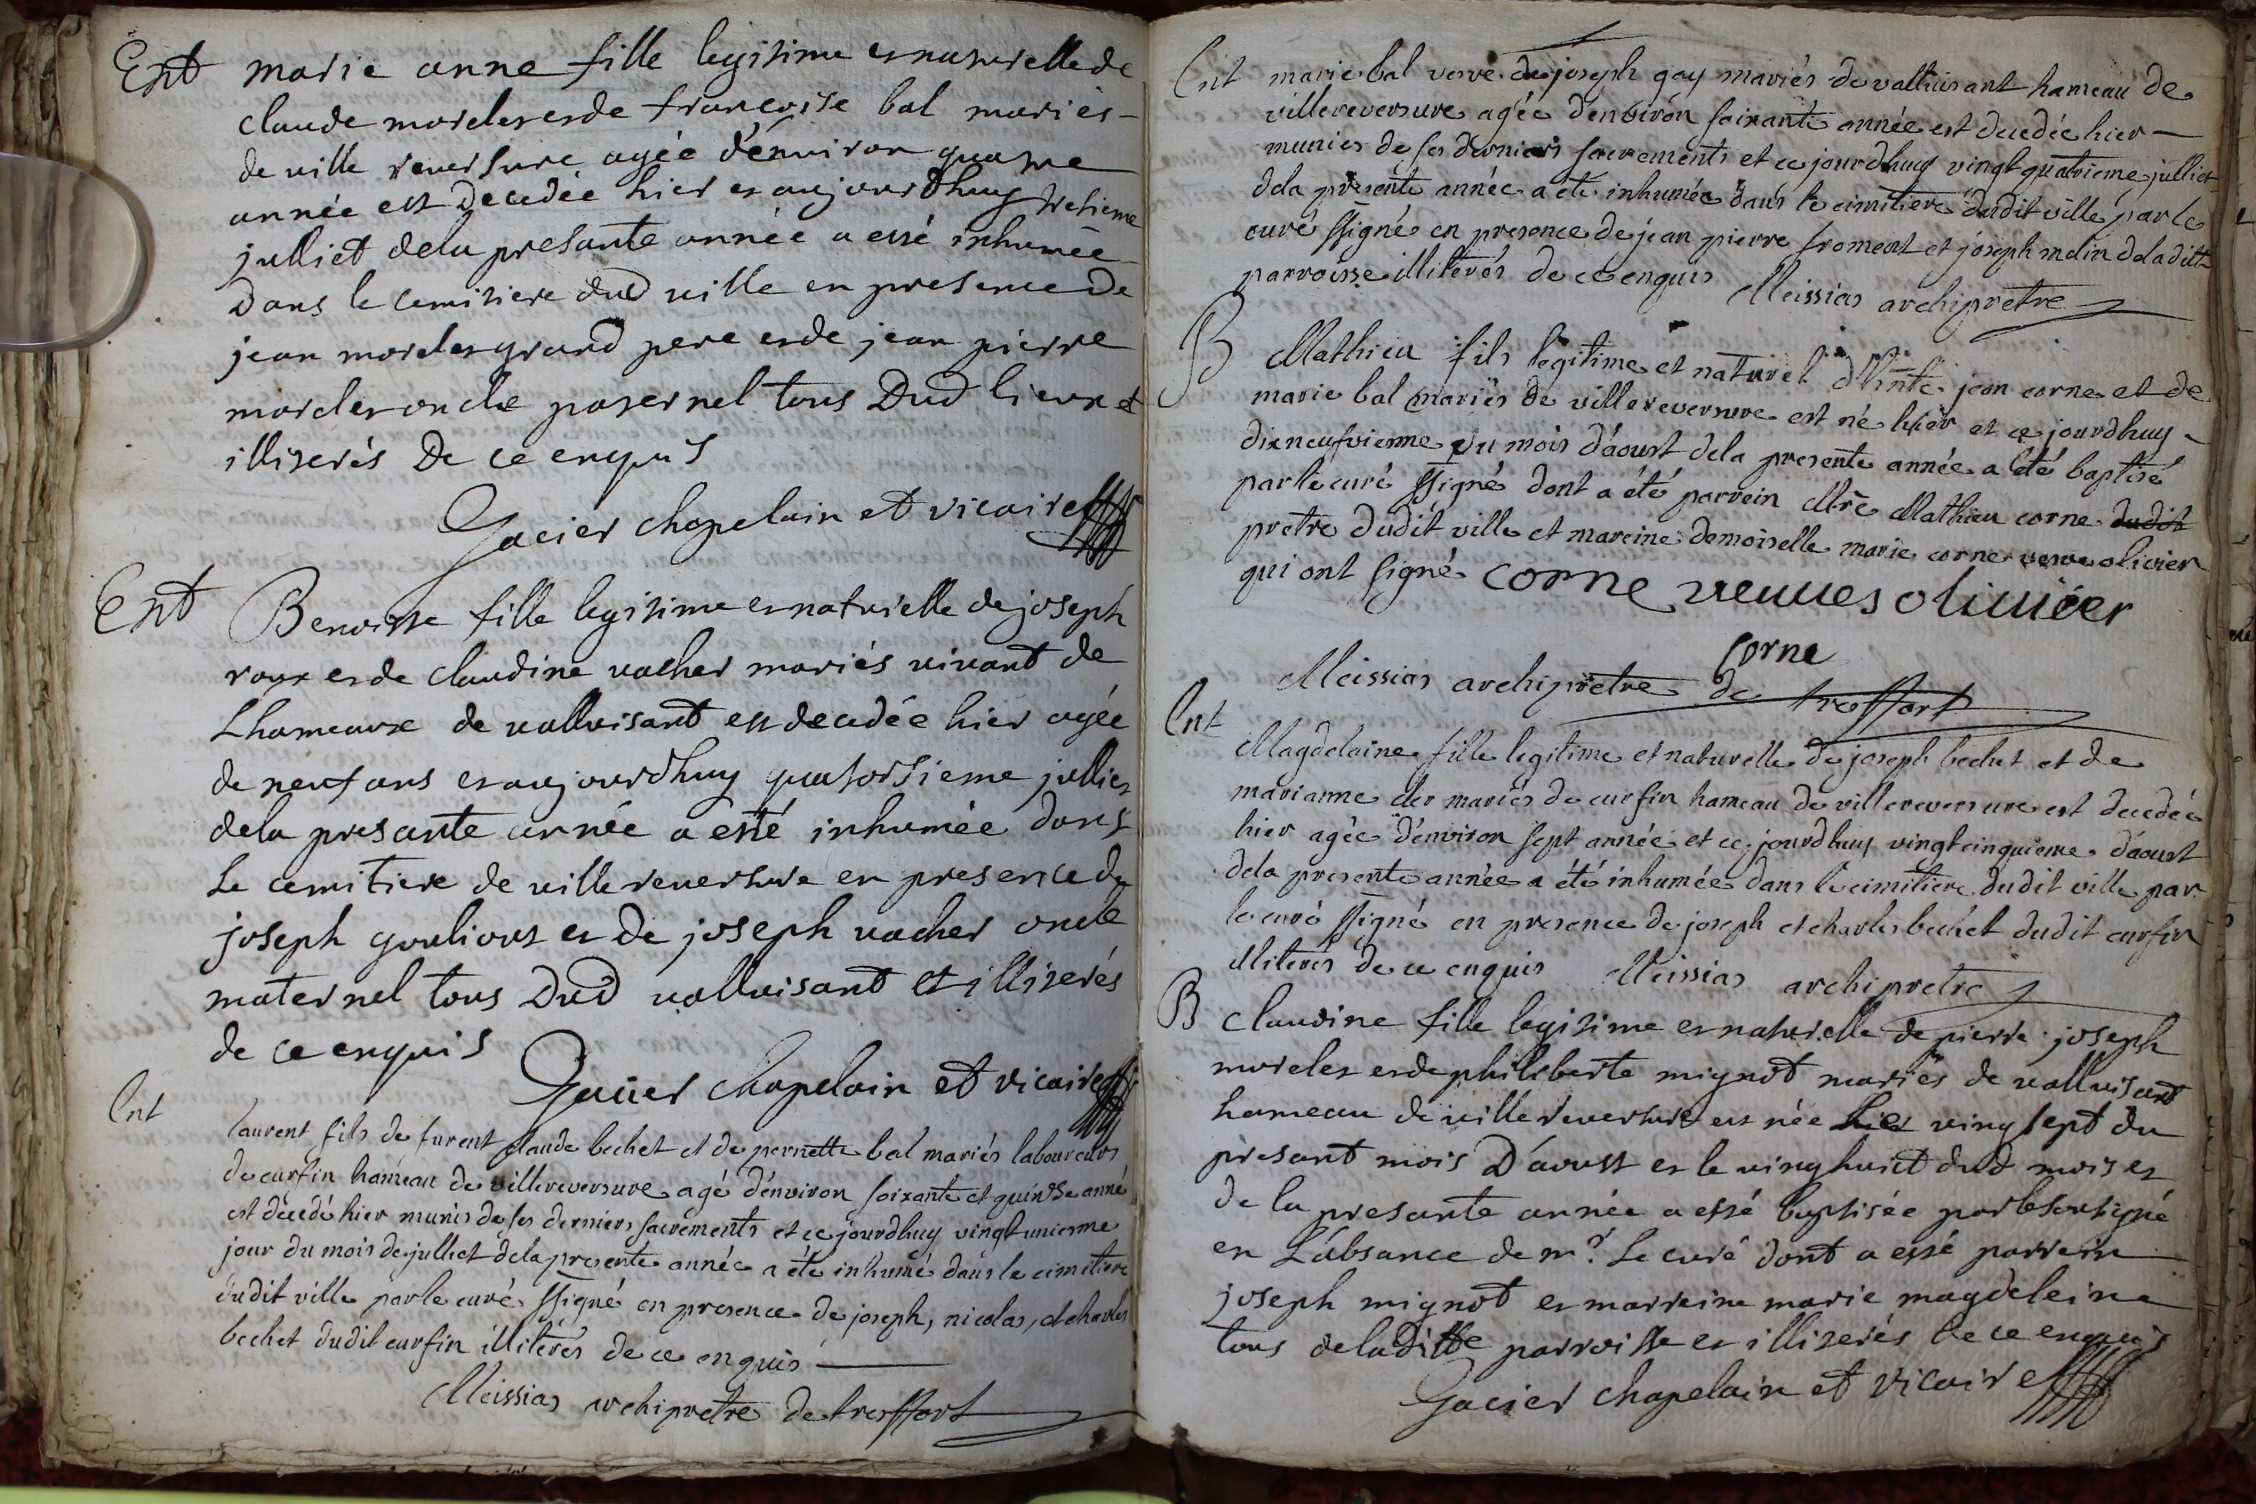 Ent marie anne fille legitime et naturelle de
claude morelet et de francoise bal mariés
de ville reversure agée d'énviron quatre
année est decedée hier et aujourdhuy tresieme
julliet dela presante année a esté inhumée
dans le cemitiere dud ville en presence de
jean morelet grand pere et de jean pierre
morelet oncle paternel tous dud lieux et
illiterés de ce enquis
Gacier chapelain et vicaire
Ent Benoitte fille legitime et naturelle de joseph
roux et de claudine vacher mariés vivant de
Lhameaux de valluisant est decedée hier agée
de neuf ans et aujourdhuy quatorsieme julliet
dela presante année a esté inhumée dans
le cemitiere de ville reversure en presence de
joseph goulious et de joseph vacher oncle
maternel tous dud valluisant et illiterés
de ce enquis Gacier chapelain et vicaire
Ent
laurent fils de furent claude bechet et de pernette bal mariés laboureurs
de curfin hameau de villereversure agé d'énviron soixante et quinse anné
est décedé hier munis de ses derniers sacrements et ce jourdhuy vingt unieme
jour du mois de julliet dela presente année a été inhumé dans le cimitiere
dudit ville par le curé ssigné en presence de joseph, nicolas, et charles
bechet dudit curfin illiterés de ce enquis
Meissias archiprêtre de treffort
Ent marie bal veuve de joseph gay mariés de valluisant hameau de
villereversure agée d'énvirón soixante année est decedée hier
munies de ses derniers sacrements et ce jourdhuy vingt quatrieme julliet
dela presente année a été inhumée dans le cimitiere dudit ville par le
curé ssigné en presence de jean pierre froment et joseph melin dela ditte
parroisse illiterés de ce enquis Meissias archiprêtre
B Mathieu fils legitime et naturel d'hnte jean corne et de
marie bal mariés de villereversure est né hier et ce jourdhuy
dixneufvieme du mois d'áoust dela presente année a été baptisé
par le curé ssigné dont a été parrein Mre Mathieu corne dudit
pretre dudit ville et mareine demoiselle marie corne veuve olivier
qui ont signé corne veuves oliuiéer
corne
Meissias archiprêtre de treffort
Ent
Magdelaine fille legitime et naturelle de joseph bechet et de
marianne mariés de curfin hameau de villereversure est decedée
hier agée d'énviron sept année et ce jourdhuy vingtcinquieme d'áoust
dela presente année a été inhumée dans le cimitiere dudit ville par
le curé ssigné en presence de joseph et charles bechet dudit curfin
illiterés de ce enquis Meissias archiprêtre
B claudine fille legitime et naturelle de pierre joseph
morelet et de philiberte mignot mariés de valluisant
hameau de ville reversure est née hier ving sept du
presant mois D'áoust et le ving huict dud mois et
de la presante année a esté baptisée par le soutsigné
en L'absance de mr le curé dont a esté parrein
joseph mignot et marreine marie magdeleine
tous de la ditte parroisse et illiterés de ce enquis
Gacier chapelain et vicaire